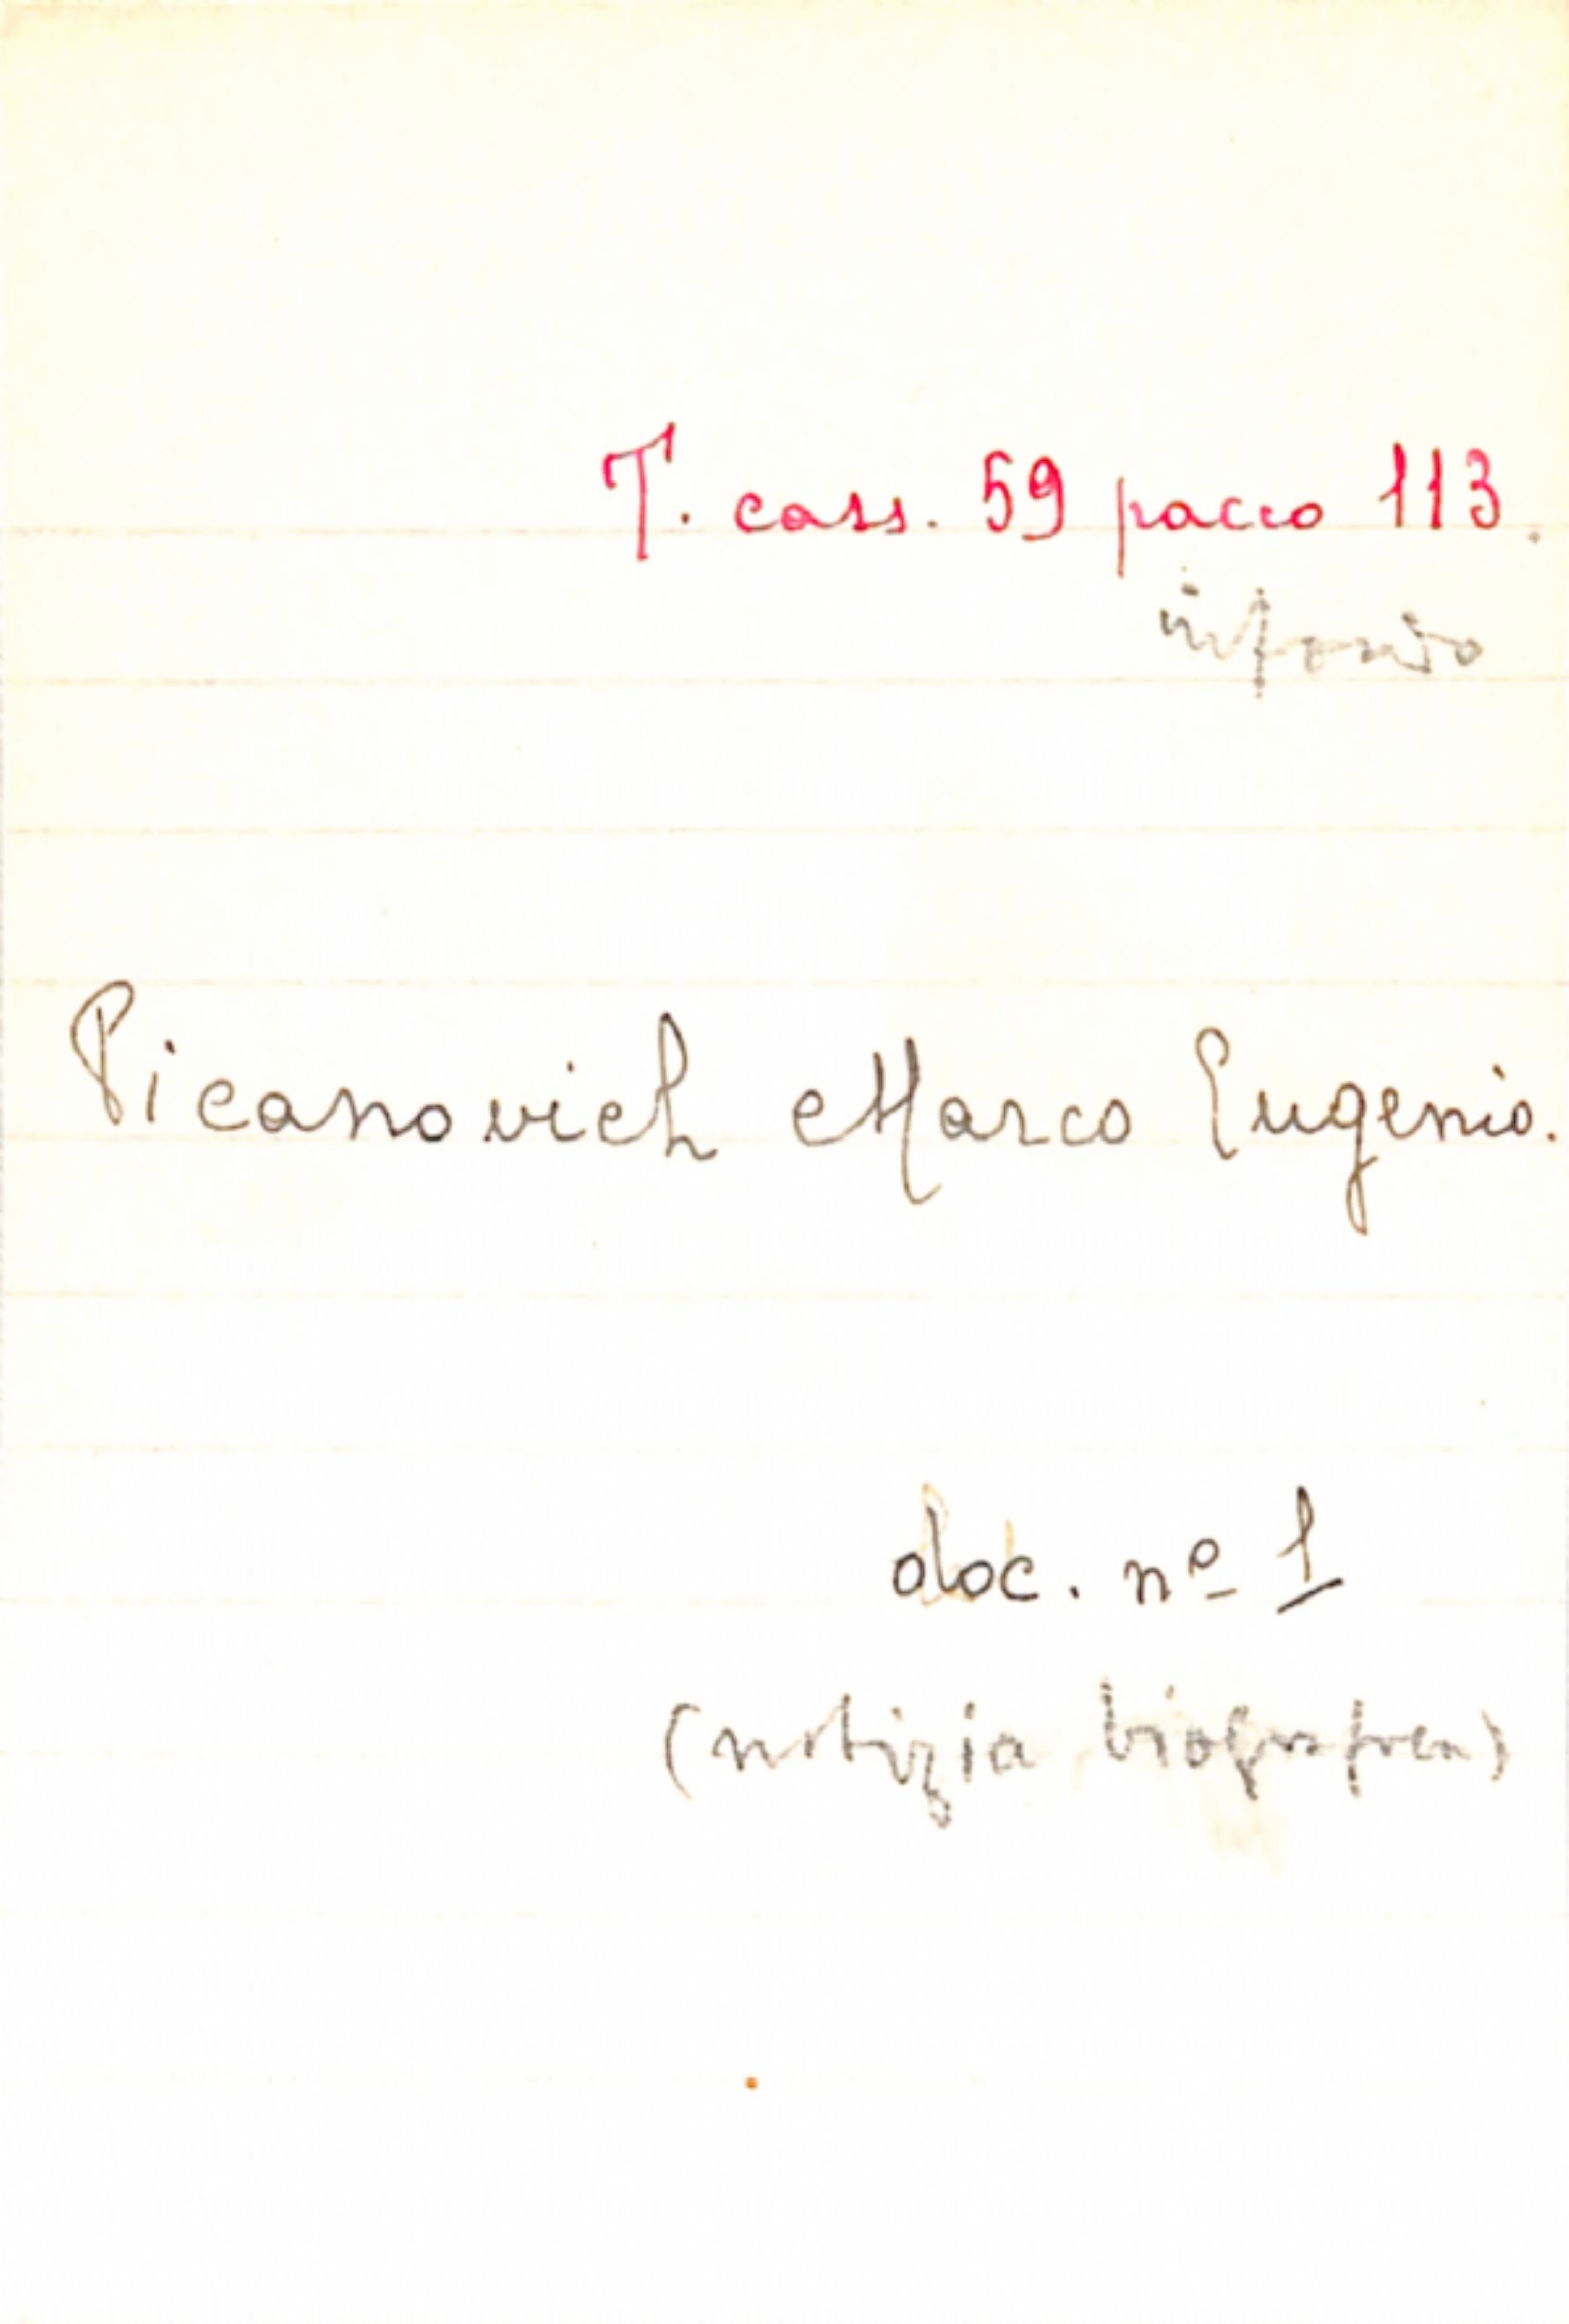 T. cass. 59 pacco 113.
in fondo
Picanovich Marco Eugenio.
doc. nº 1
(notizia biografica)